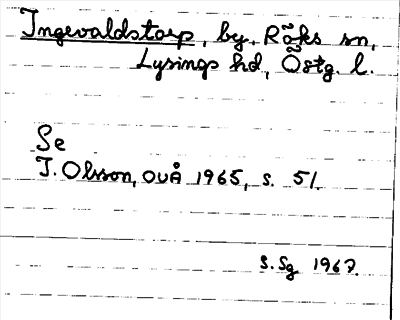 Ingevaldstorp, by, Röks sn,
Lysings hd, Östg. l.
Se
I. Olsson, OUÅ 1965, s. 51.
S.Sg 1967.